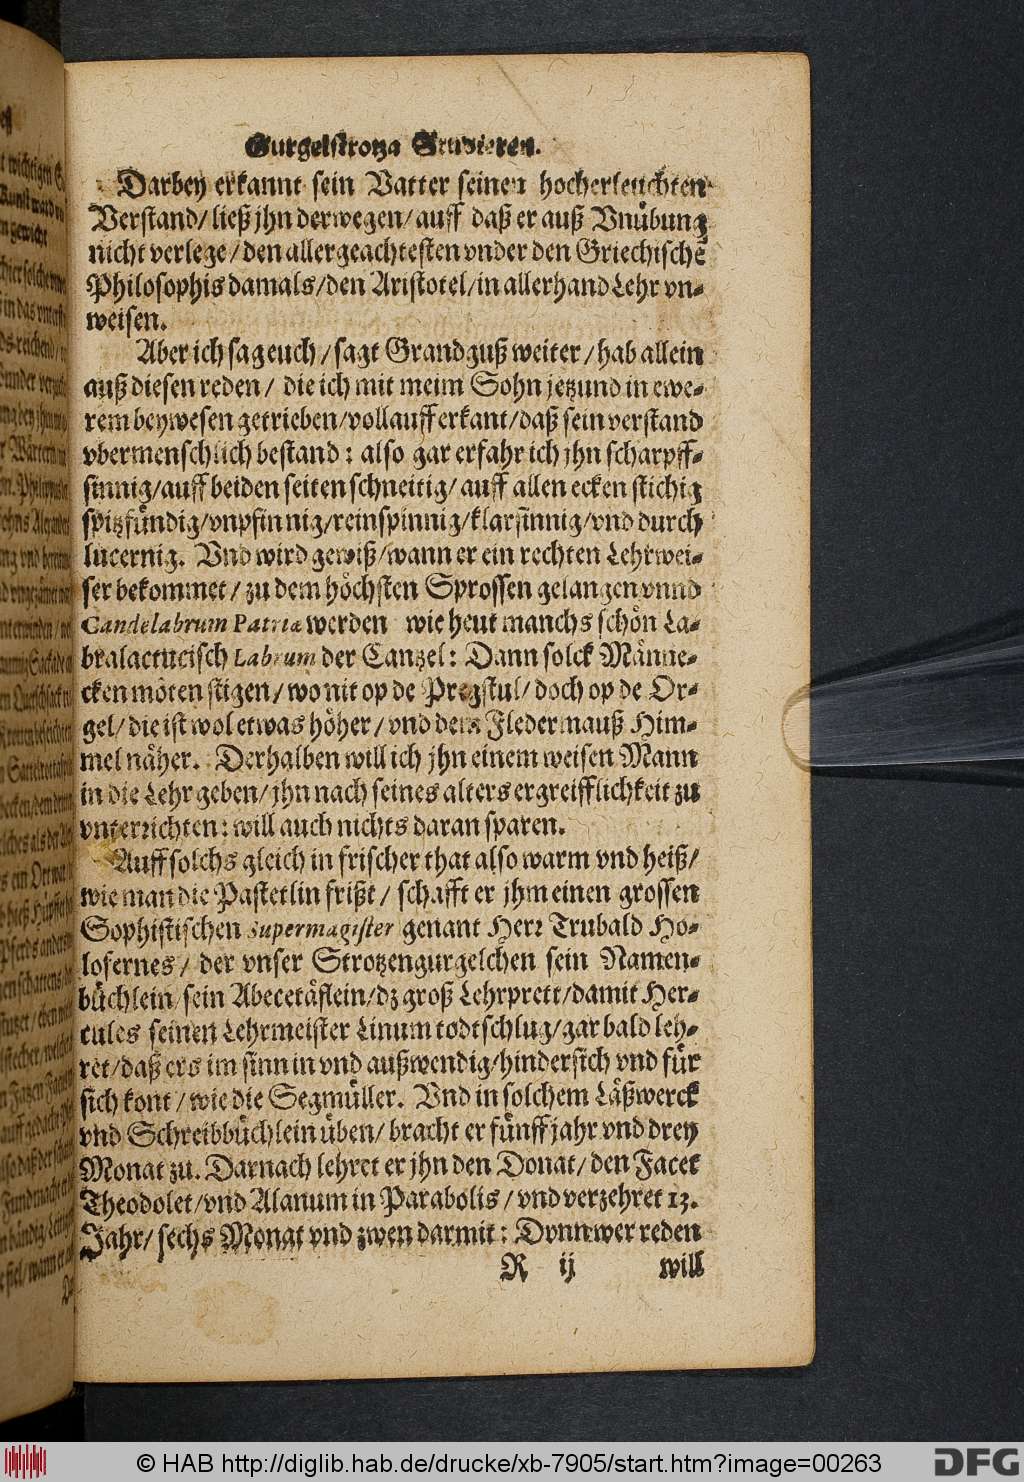 Gurgelstrotza Studieren.
Darbey erkannt sein Vatter seinen hocherleuchten
Verstand/ ließ jhn derwegen/ auff daß er auß Vnübung
nicht verlege/ den allergeachtesten vnder den Griechischẽ
Philosophis damals/ den Aristotel/ in allerhand Lehr vn-
weisen.
Aber ich sag euch/ sagt Grandguß weiter/ hab allein
auß diesen reden/ die ich mit meim Sohn jetzund in ewe-
rem beywesen getrieben/ vollauff erkant/ daß sein verstand
vbermenschlich bestand: also gar erfahr ich jhn scharpff-
sinnig/ auff beiden seiten schneitig/ auff allen ecken stichig
spitzfündig/ vnpfinnig/ reinspinnig/ klarsinnig/ vnd durch
lucernig. Vnd wird gewiß/ wann er ein rechten Lehrwei-
ser bekommet/ zu dem höchsten Sprossen gelangen vnnd
Candelabrum Patriæ werden wie heut manchs schön La-
bralactucisch Labrum der Cantzel: Dann solck Männe-
cken möten stigen/ wo nit op de Pregstul/ doch op de Or-
gel/ die ist wol etwas höher/ vnd dem Fledermauß Him-
mel näher. Derhalben will ich jhn einem weisen Mann
in die Lehr geben/ jhn nach seines alters ergreifflichkeit zu
vnterrichten: will auch nichts daran sparen.
Auff solchs gleich in frischer that also warm vnd heiß/
wie man die Pastetlin frißt/ schafft er jhm einen grossen
Sophistischen Supermagister genant Herr Trubald Ho-
lofernes/ der vnser Strotzengurgelchen sein Namen-
büchlein/ sein Abecetäflein/ dz groß Lehrprett/ damit Her-
cules seinen Lehrmeister Linum todtschlug/ gar bald leh-
ret/ daß ers im sinn in vnd außwendig/ hindersich vnd für
sich kont/ wie die Segmüller. Vnd in solchem Läßwerck
vnd Schreibbüchlein üben/ bracht er fünff jahr vnd drey
Monat zu. Darnach lehret er jhn den Donat/ den Facet
Theodolet/ vnd Alanum in Parabolis/ vnd verzehret 13.
Jahr/ sechs Monat vnd zwen darmit: Dann wer reden
R ij will
© HAB http://diglib.hab.de/drucke/xb-7905/start.htm?image=00263
DFG